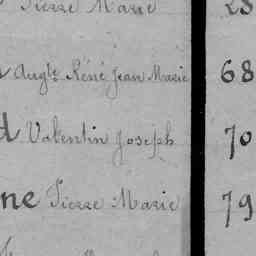 Pierre Marie 28
Augte René Jean Marie 68
d Valentin Joseph 70
ne Pierre Marie 79